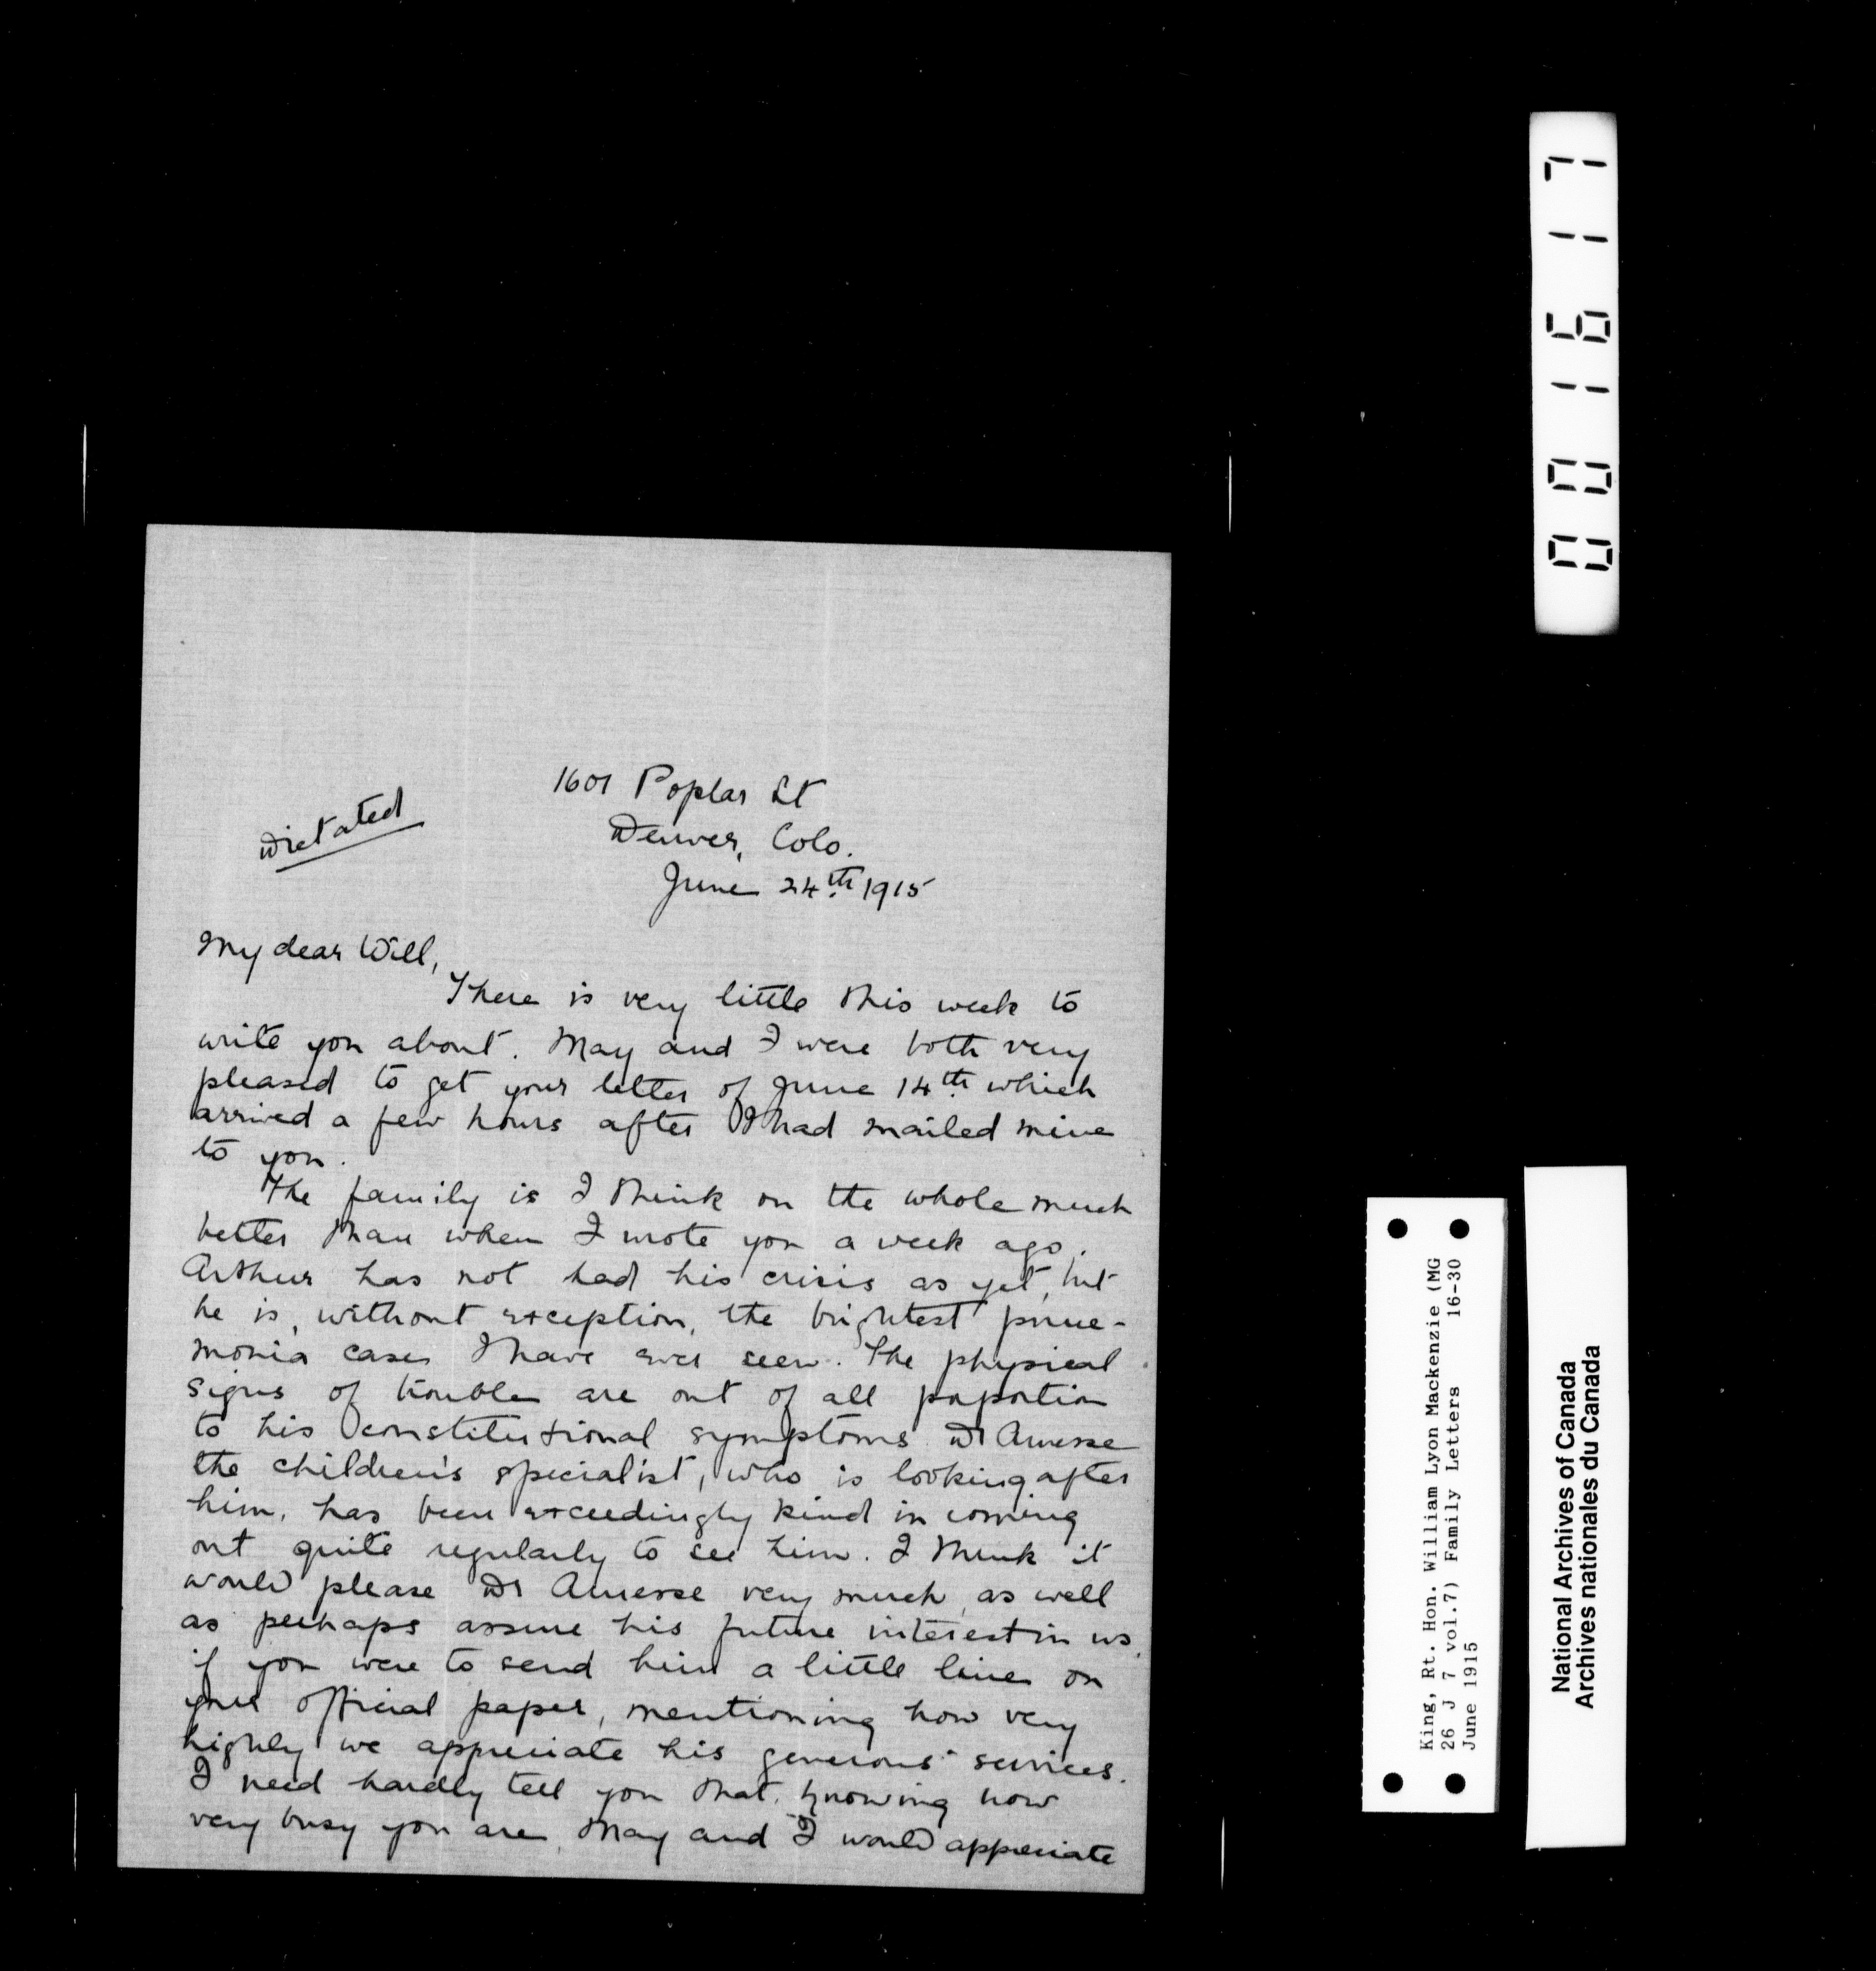 1601 Poplar St
Dictated
Denver, Colo.
June 24th 1915
My dear Will,
There is very little this week to
write you about. May and I were both very
pleased to get your letter of June 14th which
arrived a few hours after I had mailed mine
to you.
The family is I think on the whole much
better than when I wrote you a week ago.
Arthur has not had his crisis as yet, but
he is, without exception, the brightest pneu-
monia case I have ever seen. The physical
signs of trouble are out of all proportion
to his constitutional symptoms. Dr Amesse
the children's specialist, who is looking after
him, has been exceedingly kind in coming
out quite regularly to see him. I think it
would please Dr Amesse very much, as well
as perhaps assure his future interest in us,
if you were to send him a little line on
your official paper, mentioning how very
highly we appreciate his generous services.
I need hardly tell you that, knowing how
very busy you are, May and I would appreciate
001617
King, Rt. Hon. William Lyon Mackenzie (MG
26 J 7 vol.7) Family Letters 16-30
June 1915
National Archives of Canada
Archives nationales du Canada